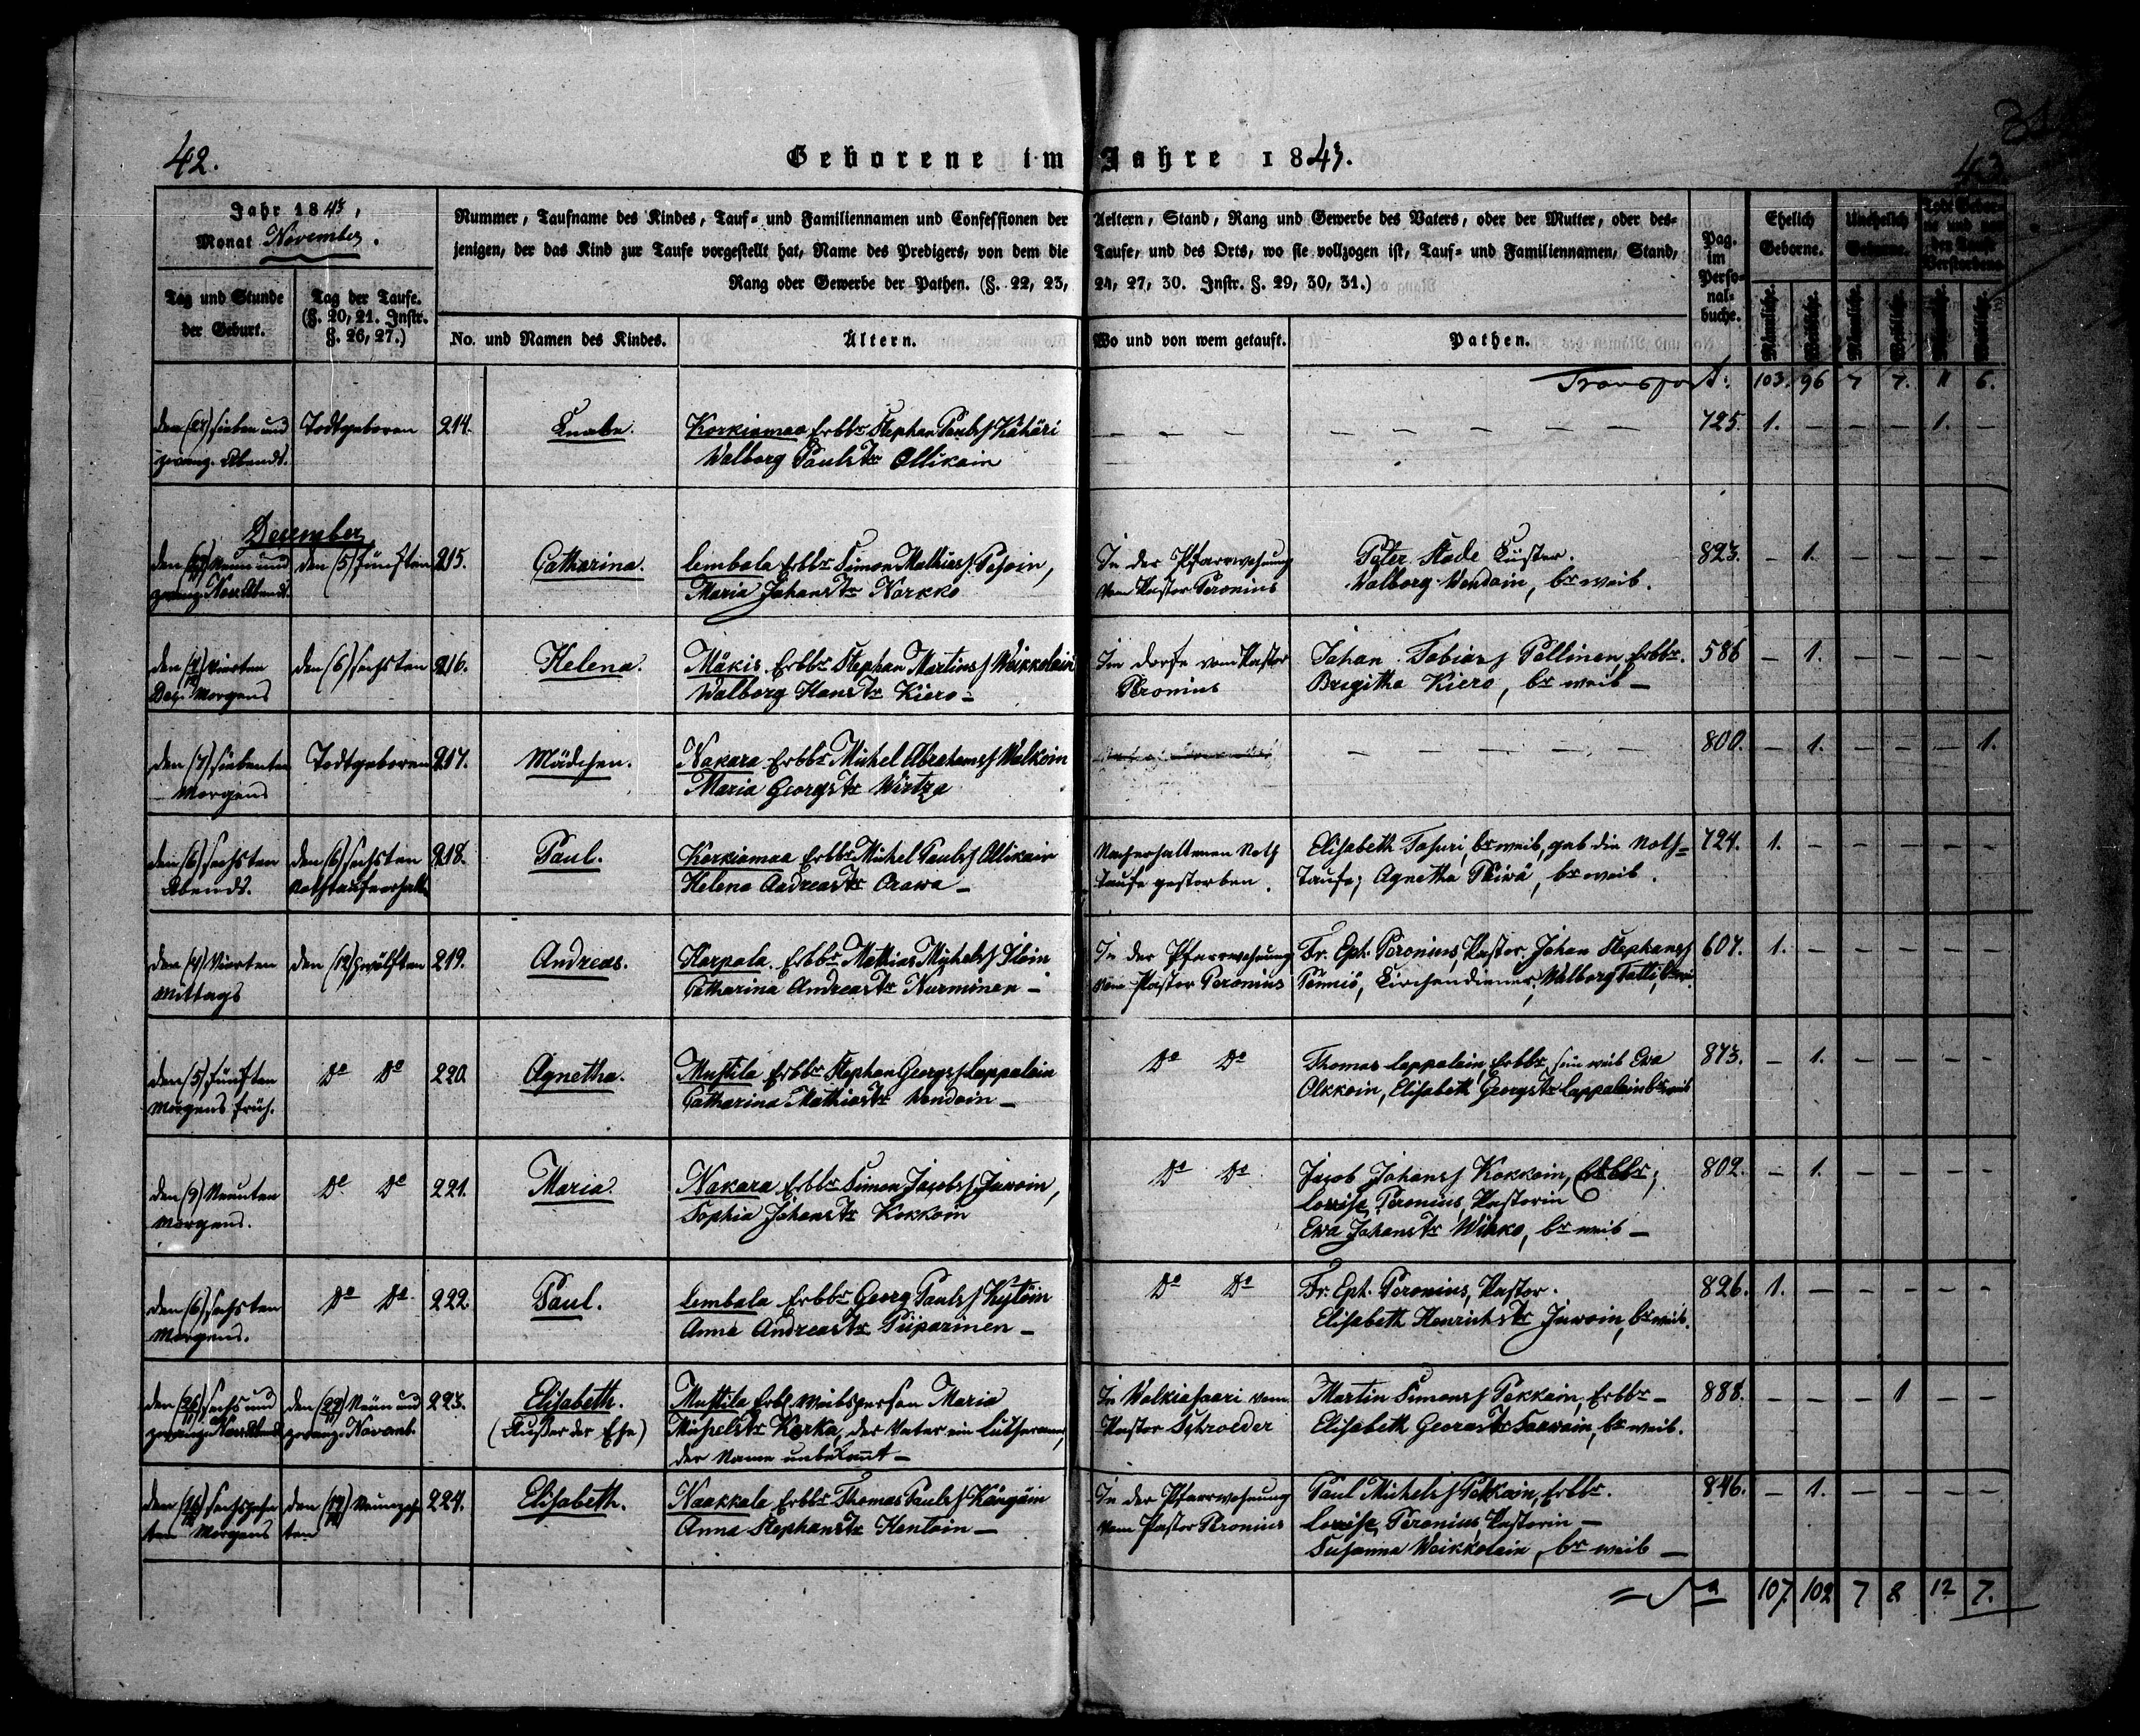 42.
Geborene im Jahre 1843.
43.
Jahr 1843,
Monat November.
Tag und Stunde
der Geburt.
Tag der Taufe.
(§. 20, 21. Instr.
§. 26, 27.)
Nummer, Taufname des Kindes, Tauf- und Familiennamen und Confessionen der Aeltern, Stand, Rang und Gewerbe des Vaters, oder der Mutter, oder des-
jenigen, der das Kind zur Taufe vorgestellt hat, Name des Predigers, von dem die Taufe, und des Orts, wo sie vollzogen ist, Tauf- und Familiennamen, Stand,
Rang oder Gewerbe der Pathen. (§. 22, 23, 24, 27, 30. Instr. §. 29, 30, 31.)
No. und Namen des Kindes.
Ältern.
Wo und von wem getauft.
Pathen.
Pag.
im
Perso-
nal-
buche.
Ehelich
Geborne.
Unehelich
Geborne.
Todt Gebor-
ne und vor
der Taufe
Verstorbene
Männliche.
Weibliche.
Männliche.
Weibliche.
Männliche.
Weibliche.
Transport: 103. 96 7 7. 11 6.
den (27) sieben und
zwanz. Abends.
Todtgeboren
214.
Knabe.
Korkiamaa Erbbr Stephan Pauls Kähäri
Walborg Paulstr Ollikain
— — — — — — — — —
725. 1. — — — 1. —
December
den (29) Neun und
zwanz. Nov Abends.
den (5) fünften
215.
Catharina.
Lembala Erbbr Simon Mathias Pesoin,
Maria Johanstr Norkko
In der Pfarrwohnung
vom Pastor Peronius
Peter Stade Küster.
Walborg Wendain, br weib.
823. — 1. — — — —
den (4) vierten
Dez. Morgens
den (6) sechsten
216.
Helena.
Mäkis Erbbr Stephan Martins Weikkolain
Walborg Hanstr Kiero —
Im Dorfe vom Pastor
Peronius
Johan Tobias Pellinen Erbbr.
Bregitha Kiero, br weib —
586 — 1. — — — —
den (7) siebenten
Morgens
Todtgeboren
217.
Mädchen.
Nakara Erbbr Michel Abrahams Walkoin
Maria Georgstr Wirtza
— — — — — —
800. — 1. — — — 1.
den (6) sechsten
Abends.
den (6) sechsten
Nothtaufe erhalt.
218.
Paul.
Korkiamaa Erbbr Michel Pauls Ollikain
Helena Andreastr Orawa —
Nach erhaltenen Noth
taufe gestorben.
Elisabeth Tohuri, br weib, gab die Noth-
taufe; Agnetha Päiwä, br weib.
724. 1. — — — — —
den (4) vierten
Mittags
den (12) zwölften
219.
Andreas.
Harpala Erbbr Mathias Michels Iloin
Catharina Andreastr Nurminen —
In der Pfarrwohnung
vom Pastor Peronius
Fr. Eph. Peronius, Pastor. Johan Stephans
Penniö, Kirchendiener, Walborg Tatti, br wei.
607. 1. — — — — —
den (5) fünften
Morgens früh.
Do Do
220.
Agnetha.
Mustila Erbbr Stephan Georgs Lappalain
Catharina Mathiastr Wendain —
Do Do
Thomas Lappalain, Erbbr, sein weib Ewa
Olkkoin, Elisabeth Georgstr Lappalain br weib
873. — 1. — — — —
den (9) Neunten
Morgens.
Do Do
221.
Maria.
Nakara Erbbr Simon Jacobs Juwoin,
Sophia Johanstr Kokkoin
Do Do
Jacob Johans Kokkoin, Erbbr;
Lowise Peronius, Pastorin
Ewa Johanstr Wirkko, br weib —
802. — 1. — — — —
den (6) sechsten
Morgens.
Do Do
222.
Paul.
Lembala Erbbr Georg Pauls Hytöin
Anna Andreastr Piiparinen —
Do Do
Fr. Eph. Peronius, Pastor.
Elisabeth Henrichstr Juwoin, br weib.
826. 1. — — — — —
den (26) sechs und
zwanz. Nov Abend
den (29) Neun und
zwanz. Novemb.
223.
Elisabeth.
(Außer der Ehe)
Mustila Erbl. Weibsperson Maria
Michelstr Korka, der Vater ein Lutheraner,
der Name unbekannt —
In Walkiasaari vom
Pastor Schroeder
Martin Simons Pekkain, Erbbr —
Elisabeth Georgstr Saawain, br weib.
888. — — — 1 — —
den (16) sechszehn
ten Morgens
den (19) Neunzehn
ten
224.
Elisabeth.
Naakkala Erbbr Thomas Pauls Kärgäin
Anna Stephanstr Hentoin —
In der Pfarrwohnung
vom Pastor Peronius
Paul Michels Pekkain, Erbbr.
Lowise Peronius, Pastorin —
Susanna Weikkolain, br weib —
846. — 1. — — — —
107. 102 7 8 12 7.